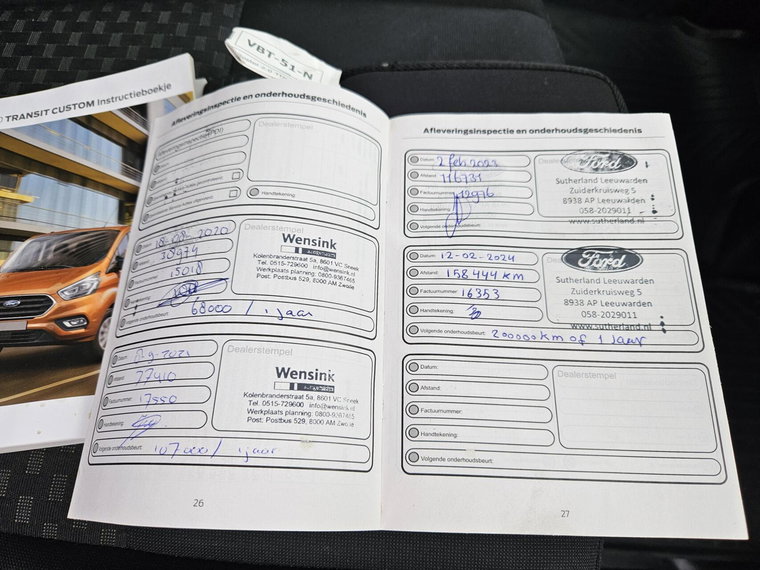 VBT-51-N
TRANSIT CUSTOM Instructieboekje
Afleveringsinspectie en onderhoudsgeschiedenis
Dealerstempel
Handtekening:
Datum: 18-08-2020
38974
15018
68000 / 1 jaar
Dealerstempel
Wensink
Kolenbranderstraat 5a, 8601 VC Sneek
Tel. 0515-729600 info@wensink.nl
Werkplaats planning: 0800-9367465
Post: Postbus 529, 8000 AM Zwolle
Datum:
77410
Factuurnummer: 17550
Handtekening:
Volgende onderhoudsbeurt: 107000/ 1 jaar
Dealerstempel
Wensink
Kolenbranderstraat 5a, 8601 VC Sneek
Tel. 0515-729600 info@wensink.nl
Werkplaats planning: 0800-9367465
Post: Postbus 529, 8000 AM Zwolle
26
Afleveringsinspectie en onderhoudsgeschiedenis
Datum: 2 feb 2023
Afstand: 116731
Factuurnummer: 12976
Handtekening:
Volgende onderhoudsbeurt:
Ford
Sutherland Leeuwarden
Zuiderkruisweg 5
8938 AP Leeuwarden
058-2029011
www.sutherland.nl
Datum: 12-02-2024
Afstand: 158444 KM
Factuurnummer: 16353
Handtekening:
Volgende onderhoudsbeurt: 200000km of 1 Jaar
Ford
Sutherland Leeuwarden
Zuiderkruisweg 5
8938 AP Leeuwarden
058-2029011
www.sutherland.nl
Datum:
Afstand:
Factuurnummer:
Handtekening:
Volgende onderhoudsbeurt:
Dealerstempel
27